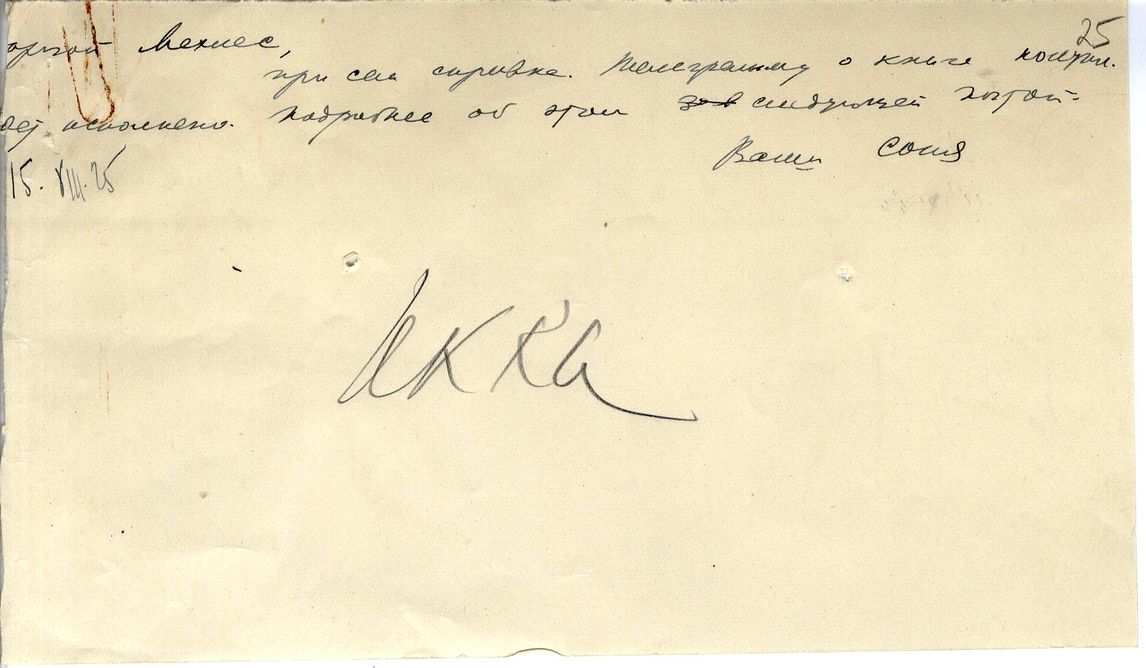 25
орогой Мехлес,
при сем справка. Телеграмму о книге получ.
дет исполнено. Подробнее об этом следующей почтой.
Ваш Соня
15. VIII. 25